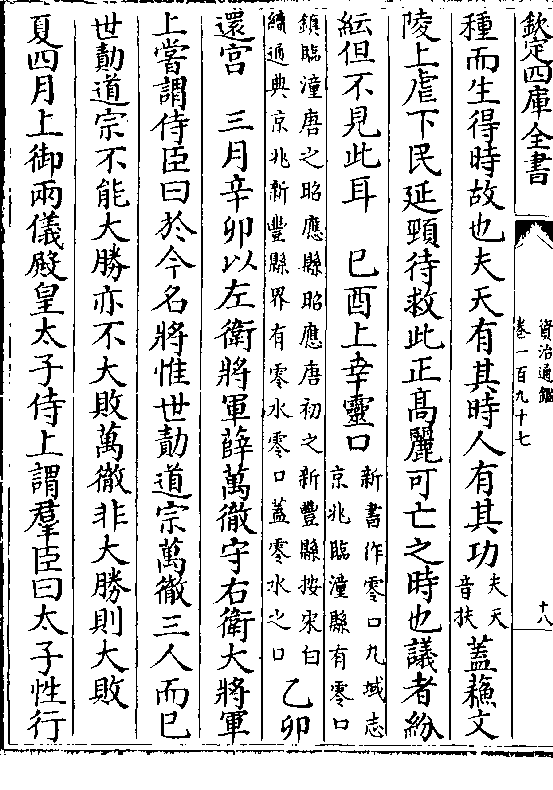 欽定四庫全書
資治通鑑
卷一百九十七
十八
種而生得時故也夫天有其時人有其功
夫天
音扶
蓋蘓文
陵上虐下民延頸待救此正髙麗可亡之時也議者紛
紜但不見此耳　已酉上幸靈口
新書作零口九域志
京兆臨潼縣有零口
鎮臨潼唐之昭應縣昭應唐初之新豐縣按宋白
續通典京兆新豐縣界有零水零口蓋零水之口
乙卯
還宫　三月辛卯以左衛將軍薛萬徹守右衛大將軍
上嘗謂侍臣曰於今名將惟世勣道宗萬徹三人而已
世勣道宗不能大勝亦不大敗萬徹非大勝則大敗
夏四月上御兩儀殿皇太子侍上謂羣臣曰太子性行